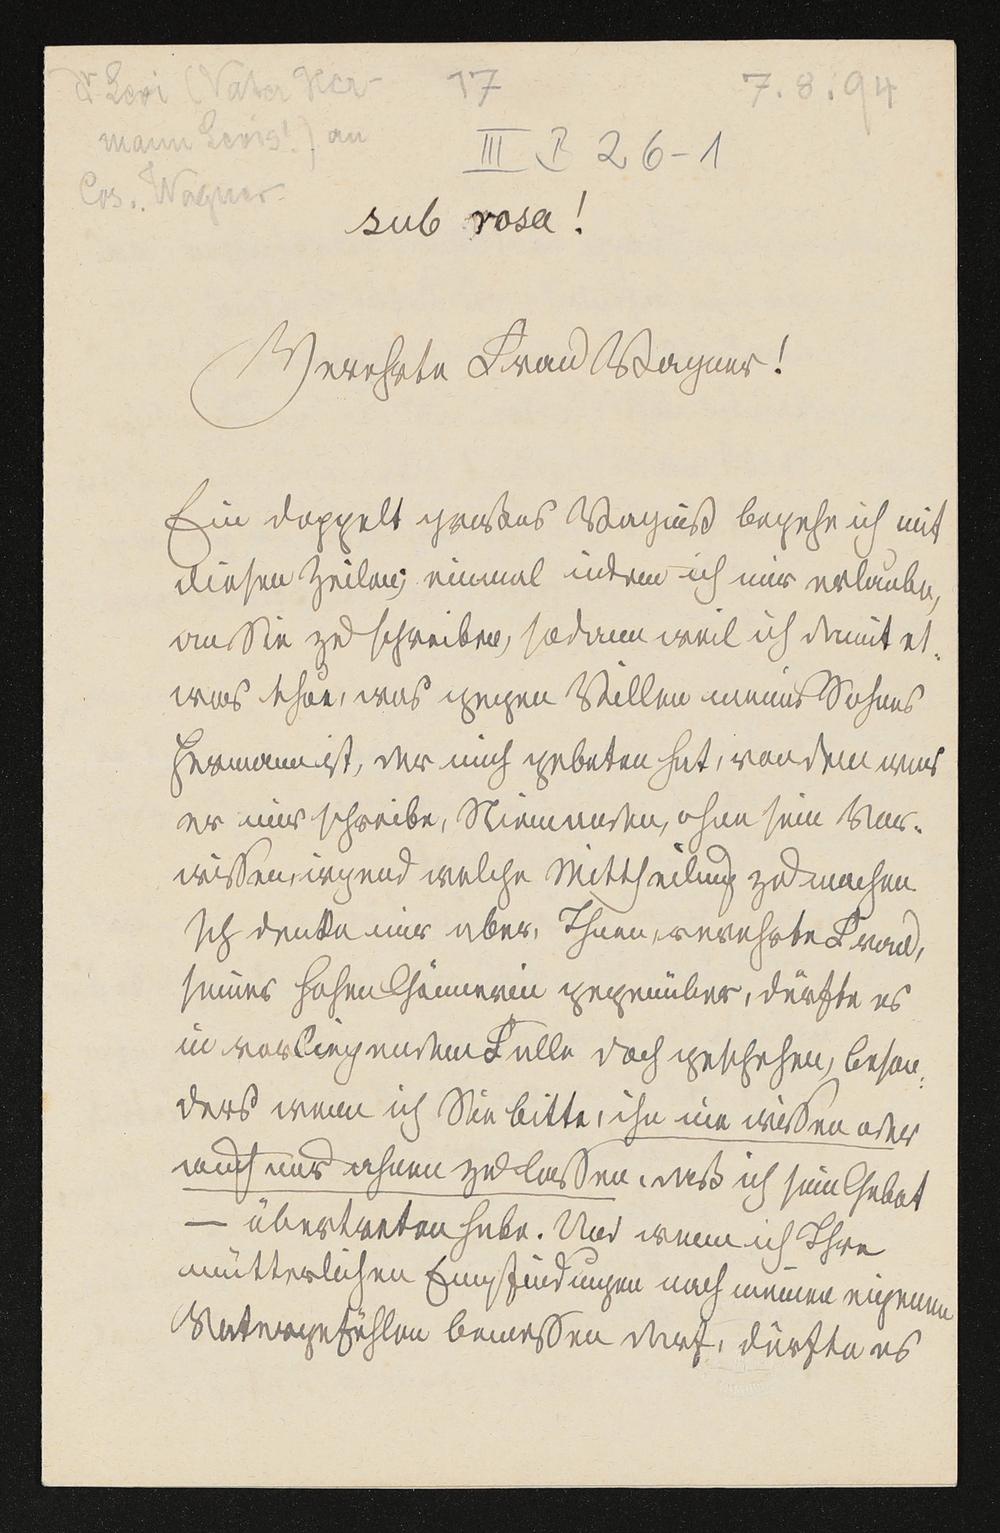 Dr Levi (Vater Her-
mann Levis!) an
Cos. Wagner.
17
7.8.94
III B 26-1
sub rosa!
Verehrte Frau Wagner!
Ein doppelt großes Wagniß begehe ich mit
diesen Zeilen; einmal indem ich mir erlaube,
an Sie zu schreiben, sodann weil ich damit et-
was thue, was gegen Willen meines Sohnes
Hermann ist, der mich gebeten hat, von dem was
er mir schreibe, Niemanden, ohne sein Vor-
wissen, irgend welche Mittheilung zu machen
Ich denke mir aber, Ihnen, verehrte Frau,
seiner hohen Gönnerin gegenüber, dürfte es
in vorliegendem Falle doch geschehen, beson-
ders wenn ich Sie bitte, ihn nie wissen oder
auch nur ahnen zu lassen, daß ich sein Gebot
— übertreten habe. Und wenn ich Ihre
mütterlichen Empfindungen nach meinen eigenen
Vatergefühlen bemessen darf, dürfte es